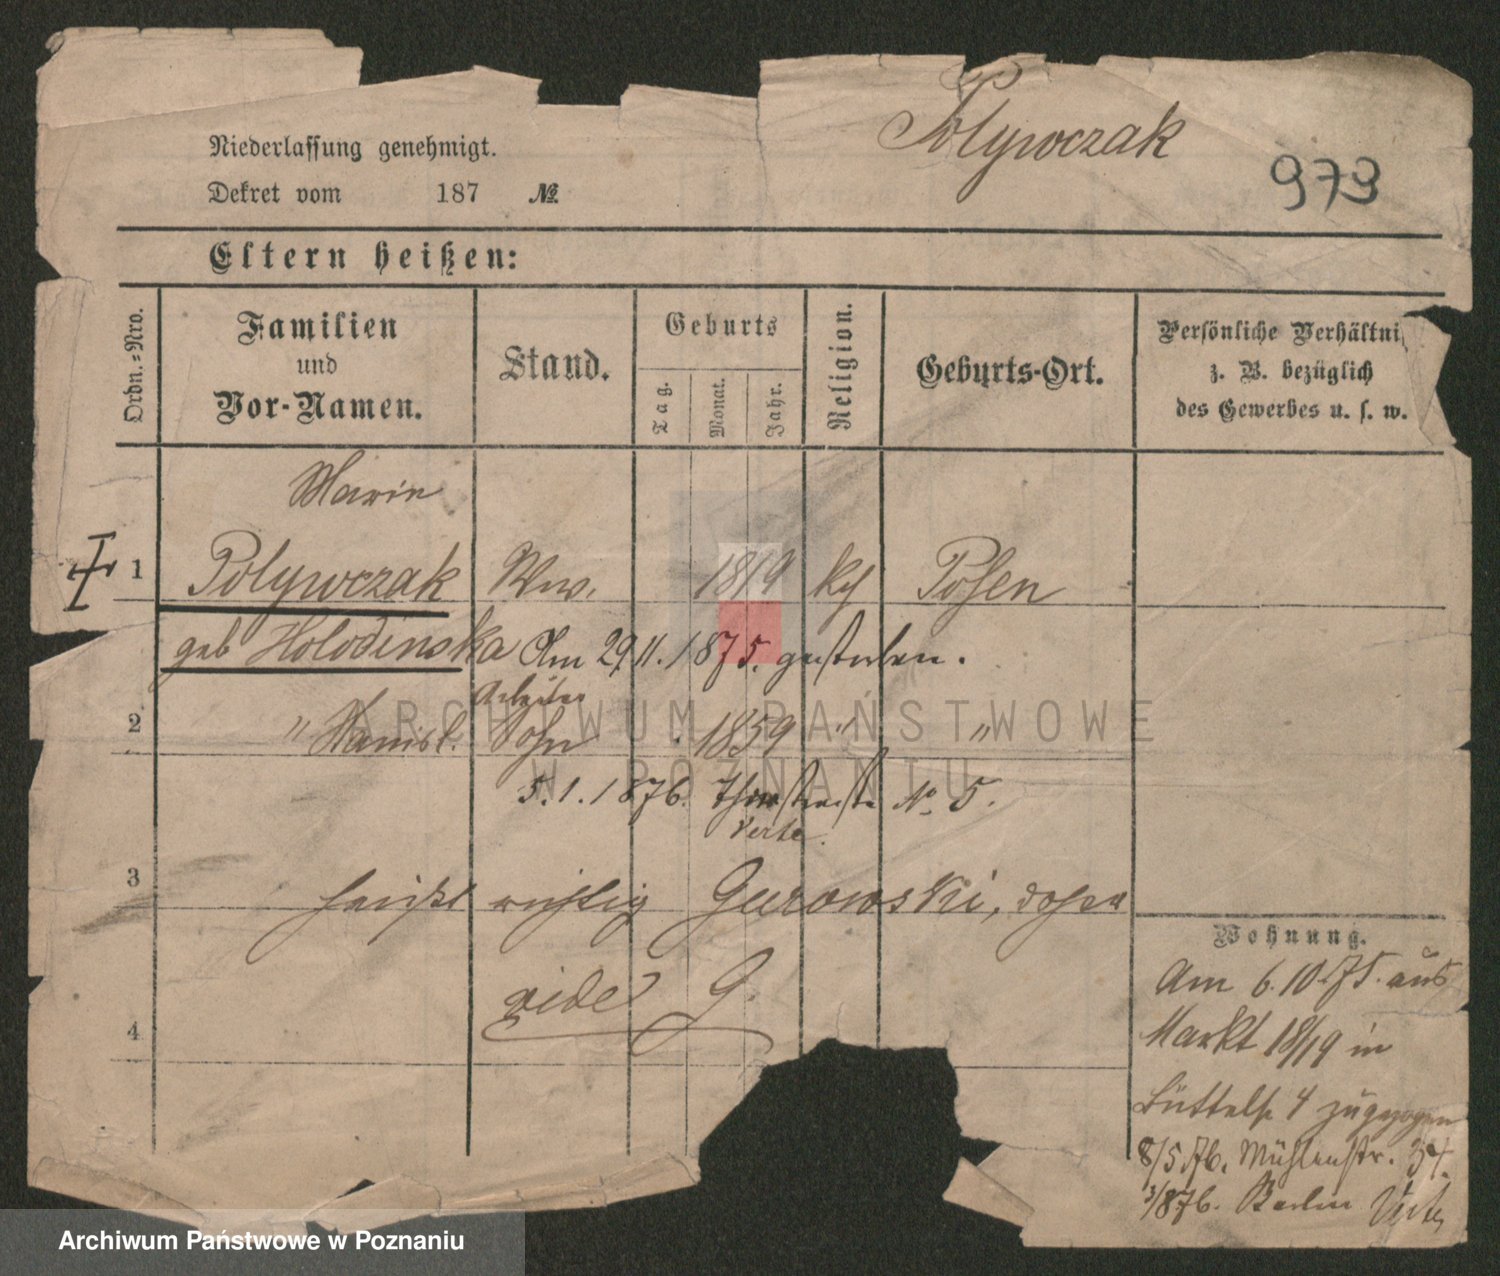 Polywczak
973
Niederlassung genehmigt.
Dekret vom 187 №
Eltern heißen:
Ordn.=Nro.
Familien
und
Vor-Namen.
Stand.
Geburts
Tag.
Monat.
Jahr.
Religion.
Geburts-Ort.
Persönliche Verhältni
z. B. bezüglich
des Gewerbes u. s. w.
Marie
1 Polywczak Ww. 1819 kth Posen
geb Holodinska Am 29/11. 1875. gestorben.
Arbeiter
2 " Stanisl. Sohn 1859 " "
5.1.1876. No 5.
Verte.
3 heißt richtig Gurowski, daher
vide G.
4
Wohnung.
Am 6.10.75. aus
Markt 18/19 in
Büttelst 4 zugezogen
8/5.76. Mühlenstr. 34.
3/876. Berlin Verte
ARCHIWUM PAŃSTWOWE
W POZNANIU
Archiwum Państwowe w Poznaniu